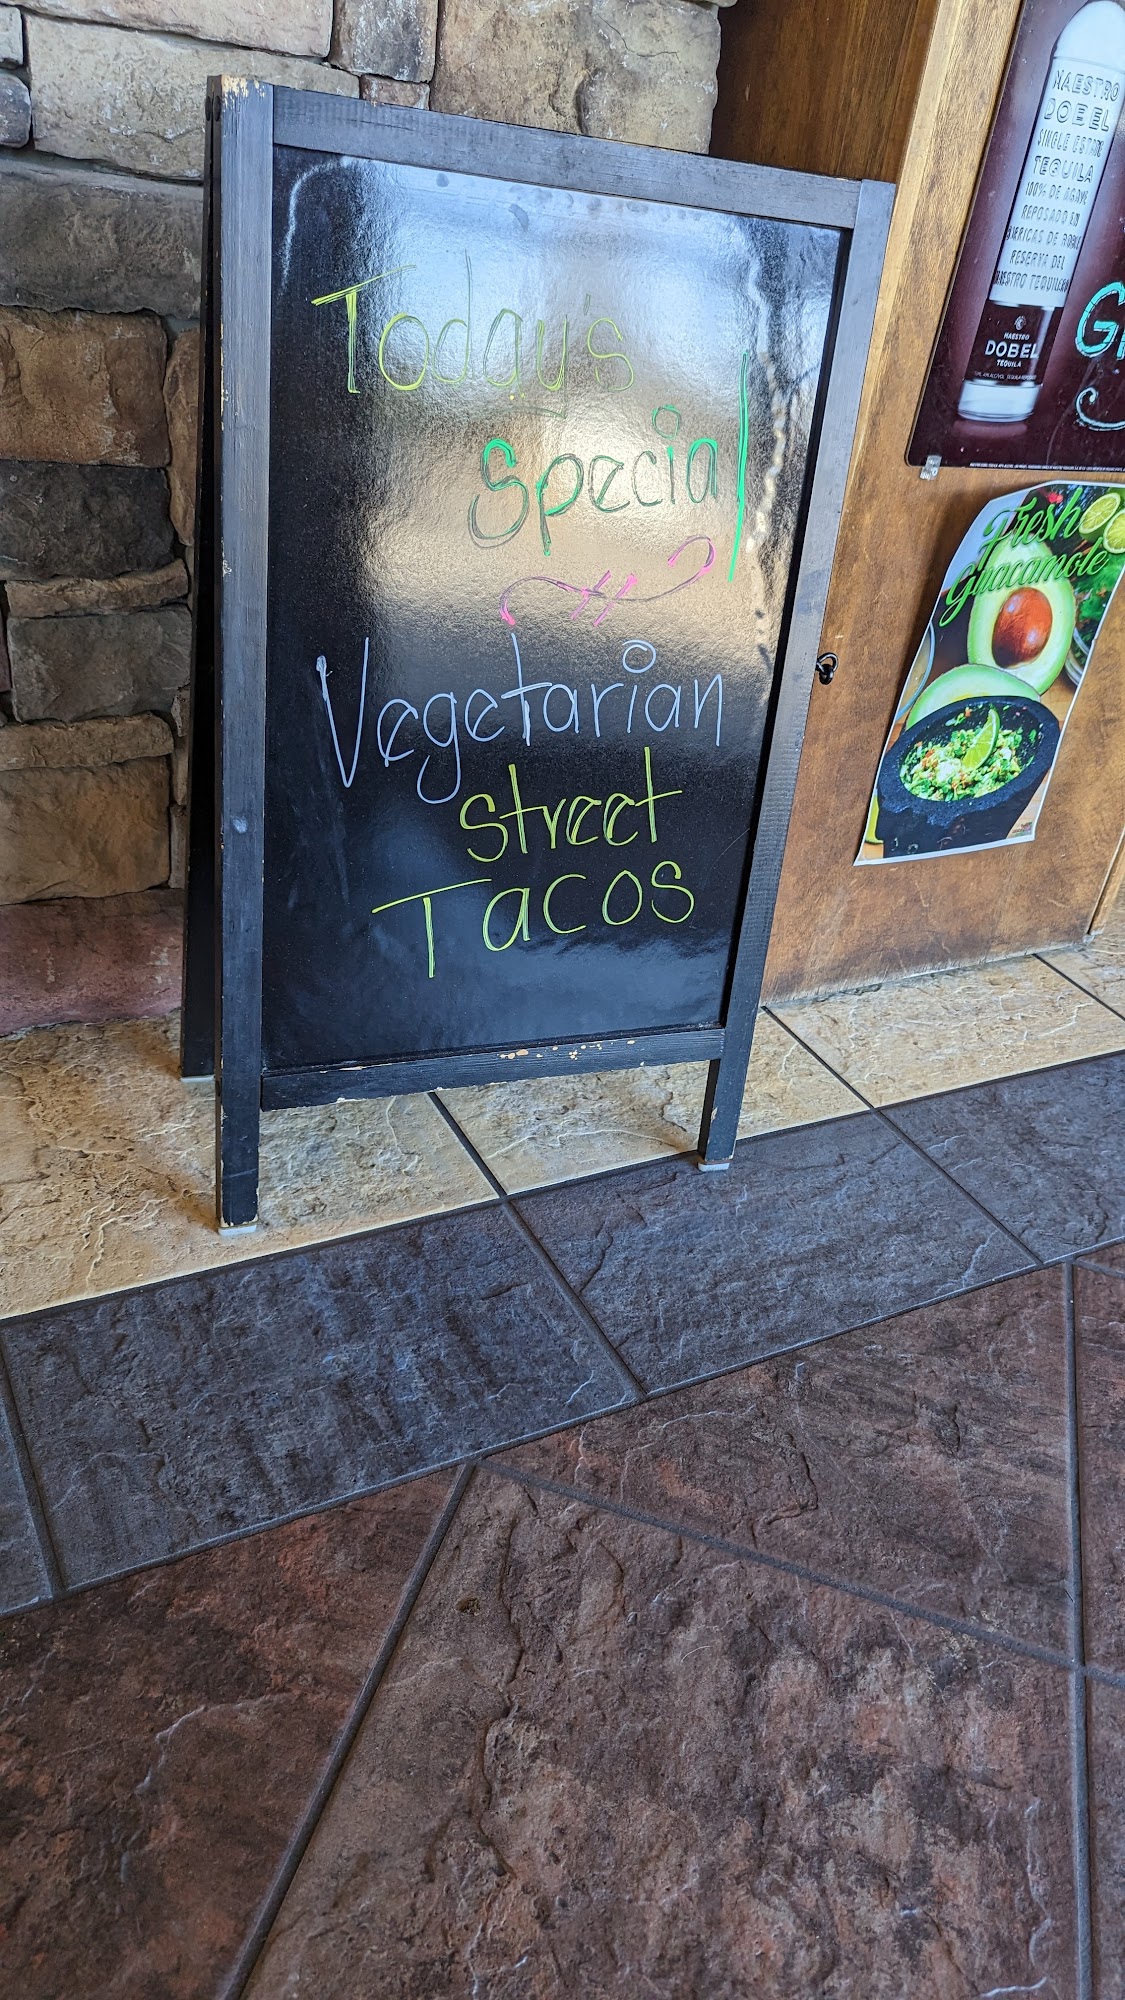 Today's
Special
Vegetarian
street
Tacos
MAESTRO
DOBEL
SINGLE ESTATE
TEQUILA
100% DE AGAVE
REPOSADO EN
BARRICAS DE ROBLE
RESERVA DEL
MAESTRO TEQUILERO
MAESTRO
DOBEL
TEQUILA
Fresh
Guacamole